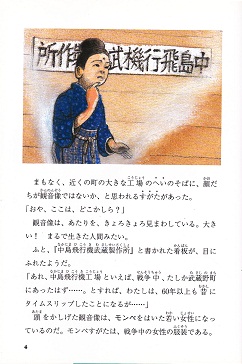 中島飛行機武 作所
まもなく、近くの町の大きな工場のへいのそばに、顔だ
ちが観音像ではないか、と思われるすがたがあった。
「おや、ここは、どこかしら？」
観音像は、あたりを、きょろきょろ見まわしている。大き
い！　まるで生きた人間みたい。
ふと、『中島飛行機武蔵製作所』と書かれた看板が、目に
ふれたようだ。
「あれ、中島飛行機工場といえば、戦争中、たしか武蔵野町
にあったはず……。とすれば、わたしは、60年以上も昔に
タイムスリップしたことになるが……」
頭をかしげる観音像は、モンペをはいた若い女性になっ
ているのだ。モンペすがたは、戦争中の女性の服装である。
4